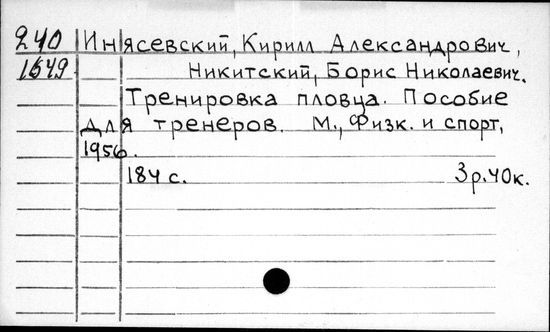 240 Инясевский, Кирилл Александрович,
1649 Никитский, Борис Николаевич.
Тренировка пловца. Пособие
для тренеров. М., Физк. и спорт,
1956.
184 с. 3р.40к.